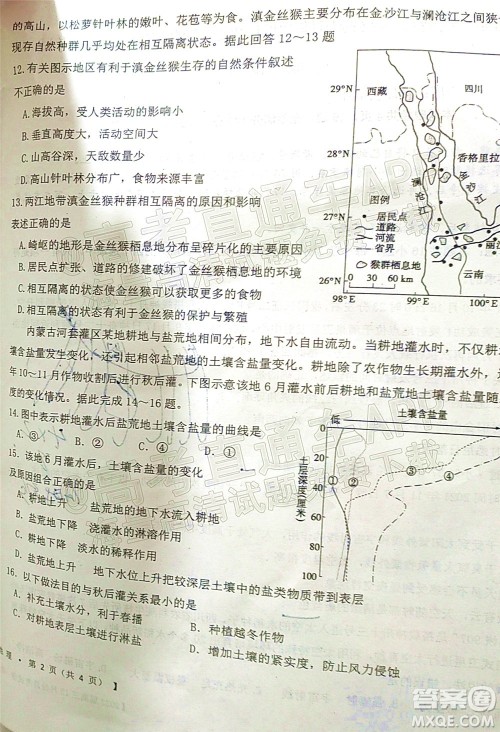 的高山，以松萝针叶林的嫩叶、花苞等为食。滇金丝猴主要分布在金沙江与澜沧江之间狭
现存自然种群几乎均处在相互隔离状态。据此回答12～13题
12.有关图示地区有利于滇金丝猴生存的自然条件叙述
不正确的是
A.海拔高，受人类活动的影响小
B.垂直高度大，活动空间大
C.山高谷深，天敌数量少
D.高山针叶林分布广，食物来源丰富
13.两江地带滇金丝猴种群相互隔离的原因和影响
表述正确的是
A.崎岖的地形使金丝猴栖息地分布呈碎片化的主要原因
B.居民点扩张、道路的修建破坏了金丝猴栖息地的环境
C.相互隔离状态使金丝猴可以获取更多的食物
D.相互隔离状态有利于金丝猴的保护与繁殖
29°N
28°N
27°N
26°N
98°E
99°E
100°E
西藏
四川
香格里拉
澜沧江
金沙江
云南
图例
居民点
道路
河流
省界
猴群栖息地
0 30 60 km
内蒙古河套灌区某地耕地与盐荒地间隔分布，地下水自由流动。当耕地灌水时，不仅耕
含盐量发生变化，还引起相邻盐荒地的土壤含盐量变化。耕地除了农作物生长期灌水外
年10～11月作物收割后进行秋后灌。下图示意该地6月灌水后耕地与盐荒地的土壤含盐量
度的变化情况。据此完成14～16题。
14.图中表示耕地灌水后盐荒地含盐量的曲线是
A.① B.② C.③ D.④
15.该地6月灌水后，土壤含盐量的变化
及原因组合正确的是
A.耕地上升 盐荒地的地下水流入耕地
B.盐荒地下降 浇灌水的淋溶作用
C.耕地下降 淡水的稀释作用
D.盐荒地上升 地下水位上升把较深层土壤中的盐类物质带到表层
低
土壤含盐量
土层深度(厘米)
0
20
40
60
80
100
①
②
③
④
16.以下做法目的与秋后灌关系最小的是
A.补充土壤水分，利于春播
B.种植越冬作物
C.对耕地表层土壤进行淋盐
D.增大土壤的紧实度，防止风力侵蚀
理·第2页(共4页)】
高考直通车APP
答案圈
MXQE.COM